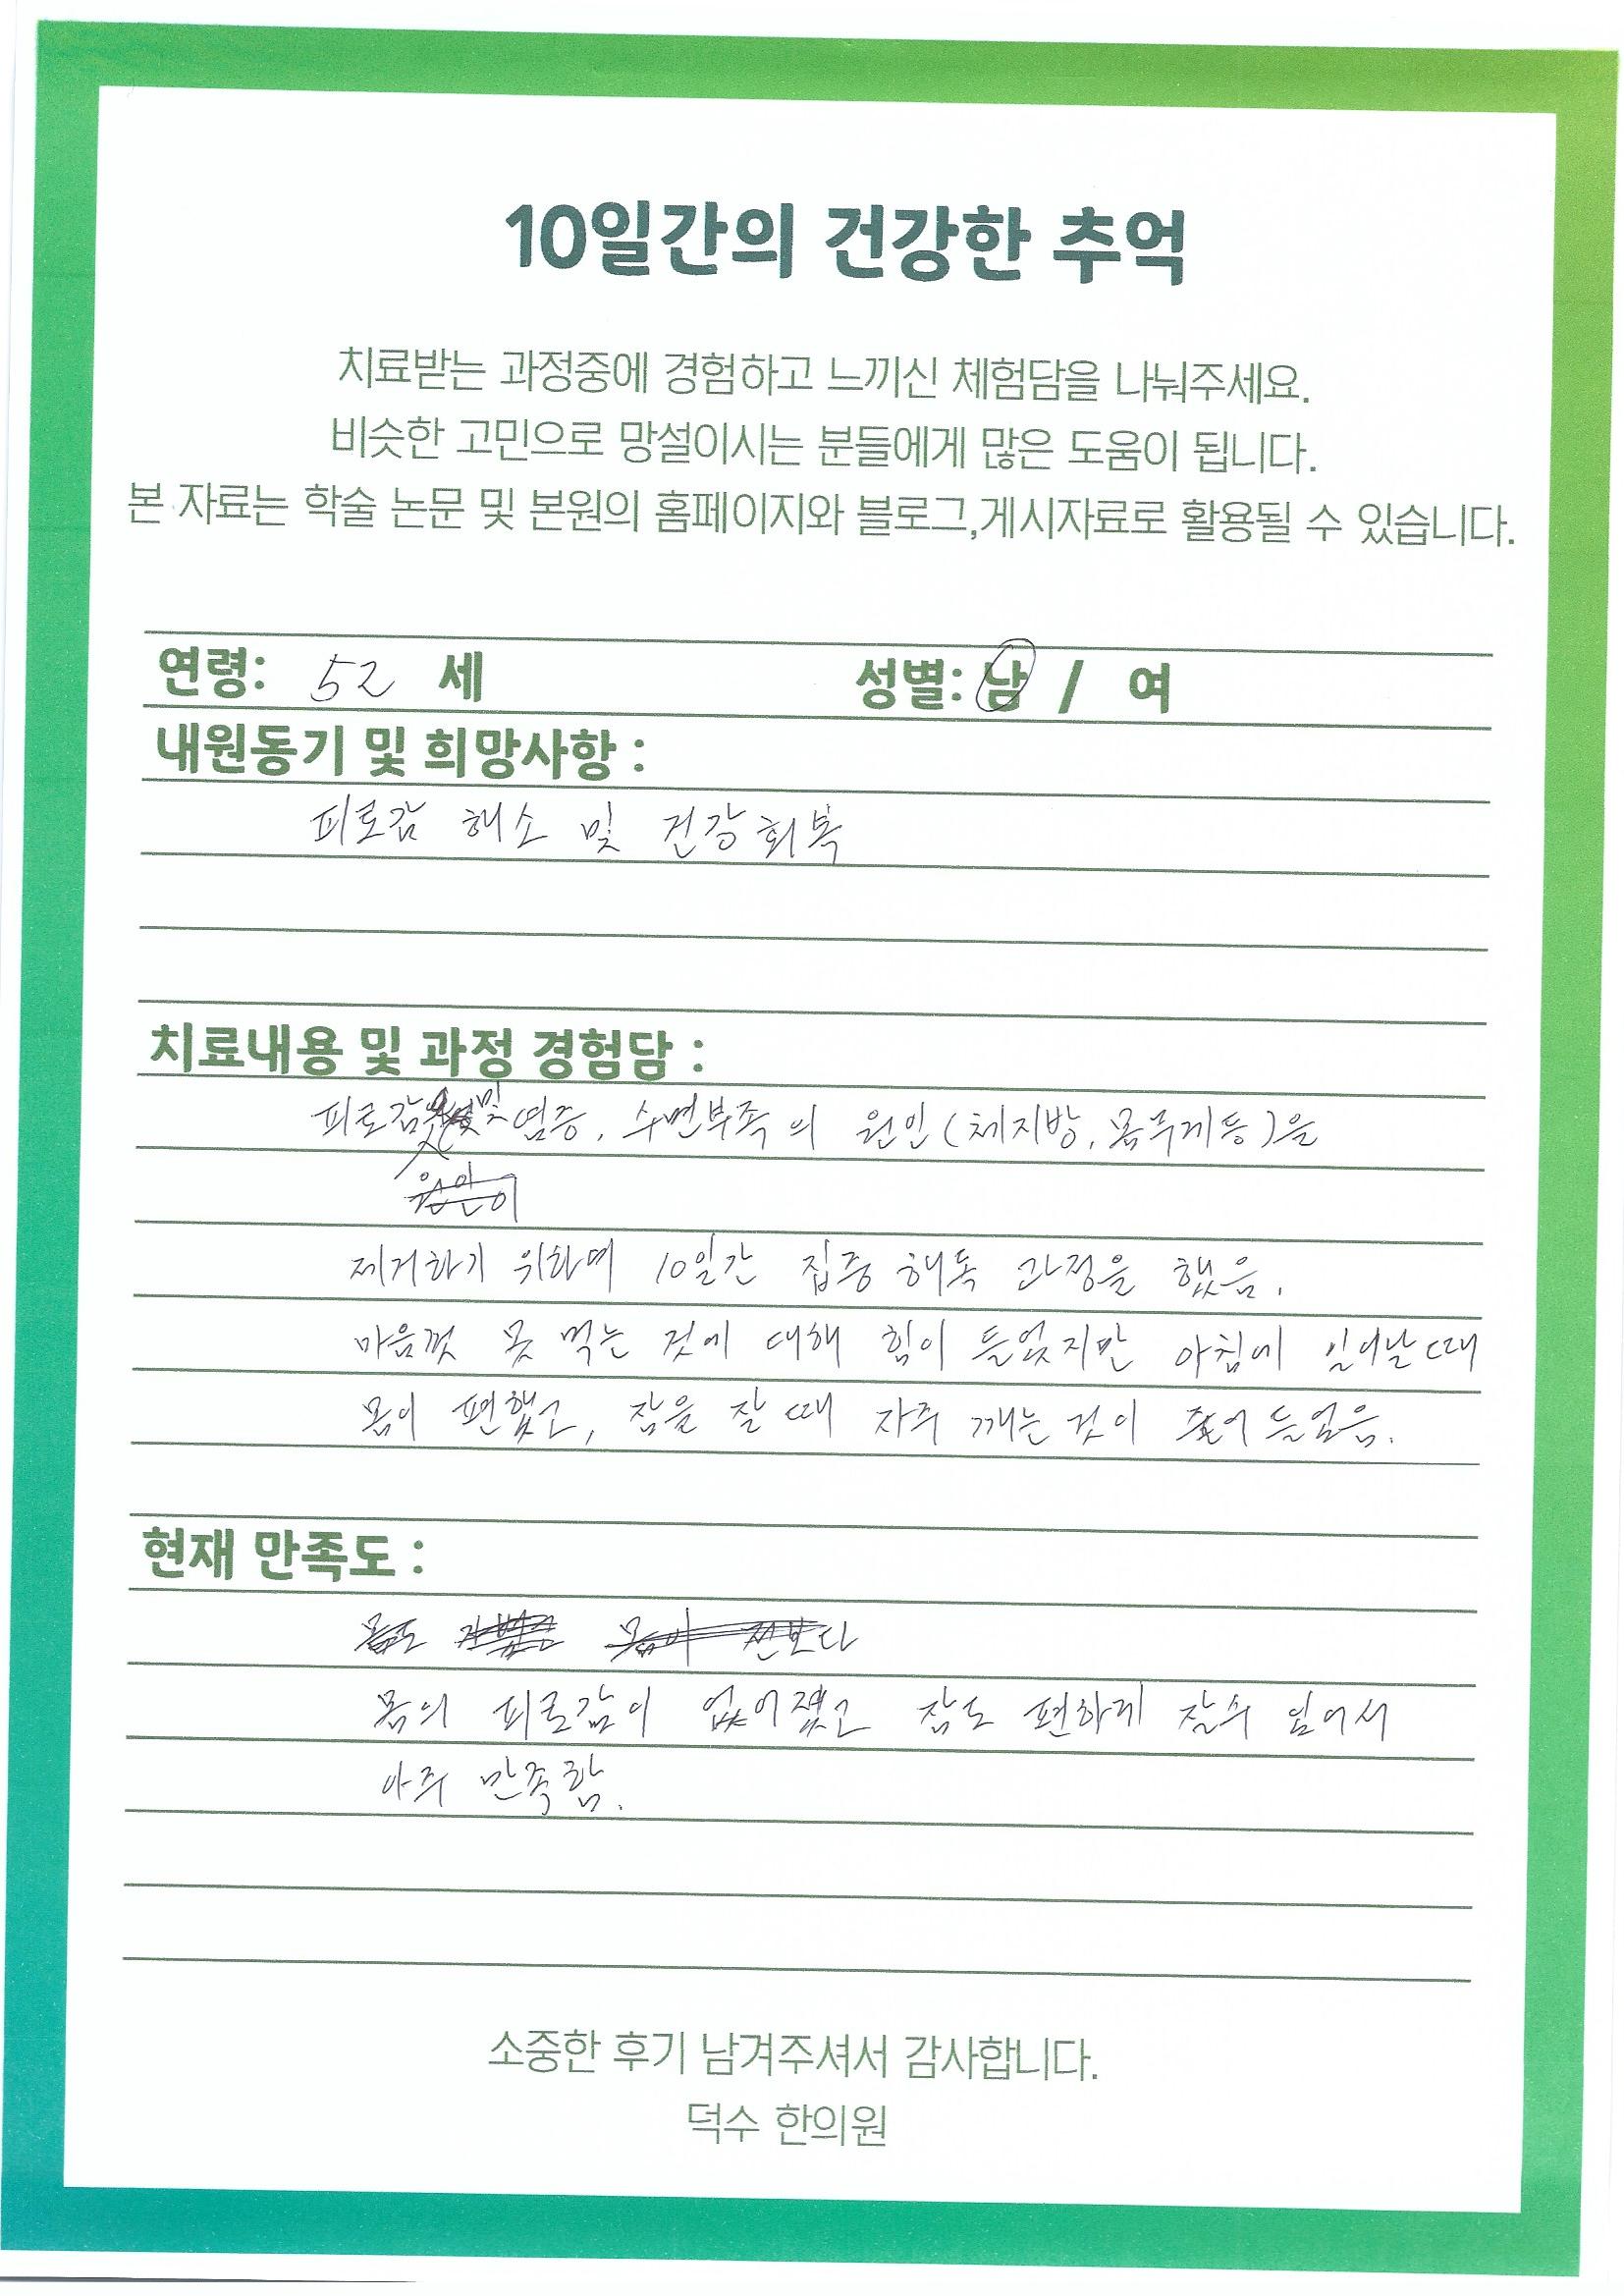 10일간의 건강한 추억
치료받는 과정중에 경험하고 느끼신 체험담을 나눠주세요.
비슷한 고민으로 망설이시는 분들에게 많은 도움이 됩니다.
본 자료는 학술 논문 및 본원의 홈페이지와 블로그,게시자료로 활용될 수 있습니다.
연령: 52 세 성별: 남 / 여
내원동기 및 희망사항 :
피로감 해소 및 건강회복
치료내용 및 과정 경험담 :
피로감 및 염증, 수면부족의 원인(체지방, 몸무게등)을
원인이
제거하기 위하여 10일간 집중 해독 과정을 했음.
마음껏 못 먹는 것에 대해 힘이 들었지만 아침에 일어날때
몸이 편했고, 잠을 잘 때 자주 깨는 것이 줄어 들었음.
현재 만족도 :
몸이 전보다
몸의 피로감이 없어졌고 잠도 편하게 잘수 있어서
아주 만족함.
소중한 후기 남겨주셔서 감사합니다.
덕수 한의원